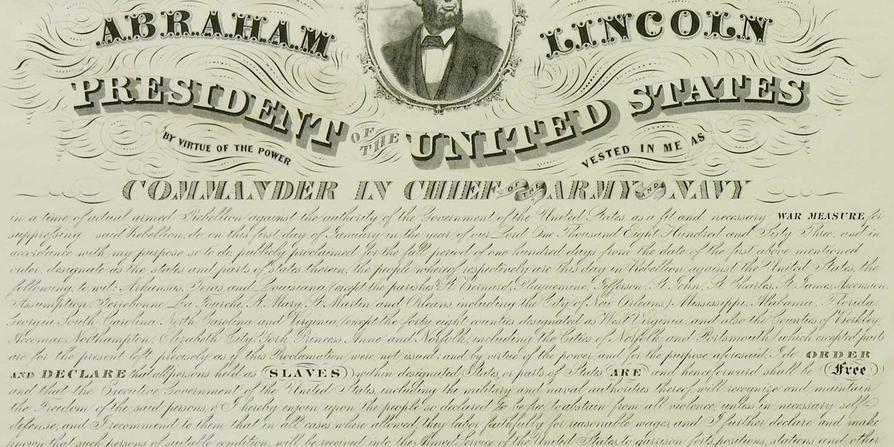 ABRAHAM LINCOLN
PRESIDENT OF THE UNITED STATES
BY VIRTUE OF THE POWER VESTED IN ME AS
COMMANDER IN CHIEF OF THE ARMY AND NAVY
in a time of actual armed Rebellion against the authority of the Government of the United States, as a fit and necessary WAR MEASURE for
suppressing said Rebellion, do, on this first day of January in the year of our Lord One Thousand Eight Hundred and Sixty Three, and in
accordance with my purpose so to do, publicly proclaimed for the full period of one hundred days from the date of the first above mentioned
order, designate as the states and parts of States therein, the people whereof respectively are this day in Rebellion against the United States, the
following to wit: Arkansas, Texas and Louisiana (except the parishes St Bernard, Plaquemine, Jefferson, St. John, St. Charles, St. James, Ascension,
Assumption, Terrebonne, La Fourche, St. Mary, St. Martin, and Orleans, including the City of New Orleans,) Mississippi, Alabama, Florida,
Georgia, South Carolina, North Carolina and Virginia, (except the forty eight counties designated as West Virginia, and also the Counties of Berkley,
Accomac, Northampton, Elizabeth City, York, Princess Anne, and Norfolk, including the Cities of Norfolk and Portsmouth) which excepted parts
are for the present left precisely as if this Proclamation were not issued: and by virtue of the power and for the purpose aforesaid, I do ORDER
AND DECLARE that all persons held as SLAVES within designated States, or parts of States ARE and henceforward shall be Free
and that the Executive Government of the United States, including the military and naval authorities thereof will recognize and maintain
the Freedom of the said persons, & I hereby enjoin upon the people so declared to be free, to abstain from all violence, unless in necessary self
defense, and I recommend to them that in all cases where allowed, they labor faithfully for reasonable wages, and I further declare and make
known that such persons of suitable condition, will be received into the Armed Service of the United States to garrison forts, positions, stations, and other